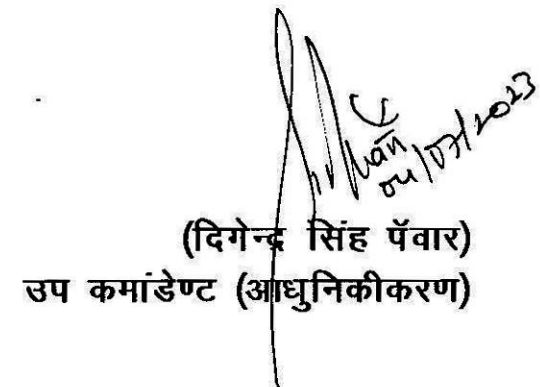 04/07/2023
(दिगेन्द्र सिंह पॅवार)
उप कमांडेण्ट (आधुनिकीकरण)